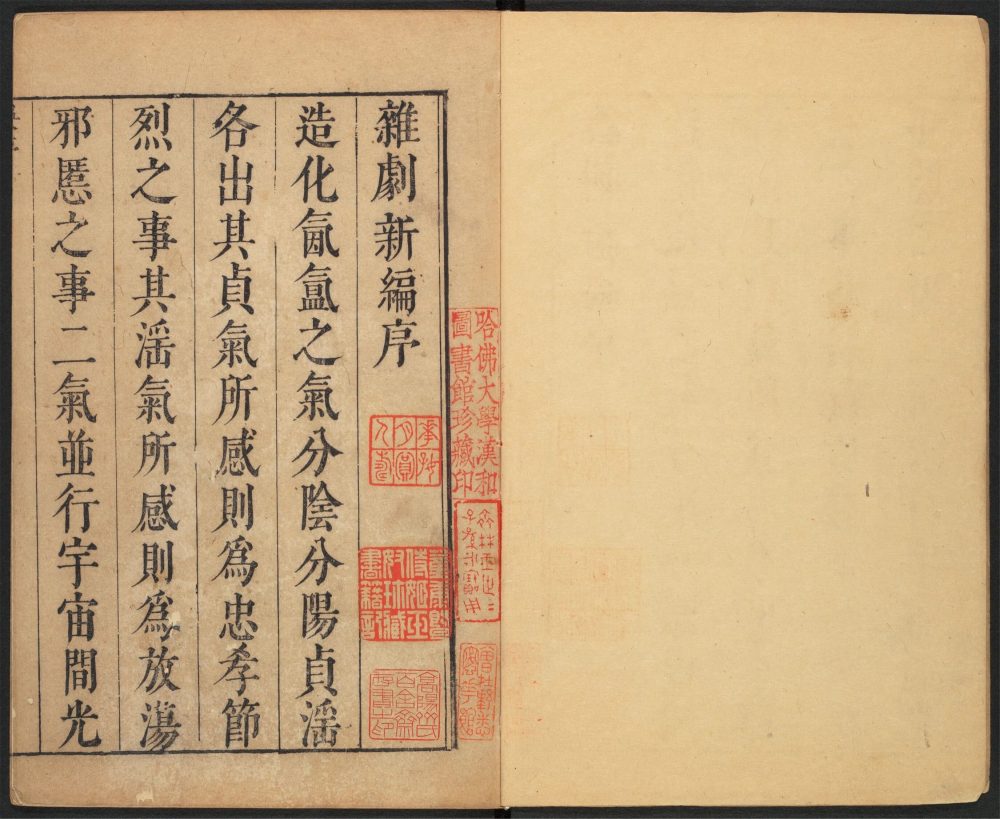 雜劇新編序
造化氤氳之氣分陰分陽貞滛
各出其貞氣所感則為忠孝節
烈之事其滛氣所感則為放蕩
邪慝之事二氣並行宇宙間光
哈佛大學漢和
圖書館珍藏印